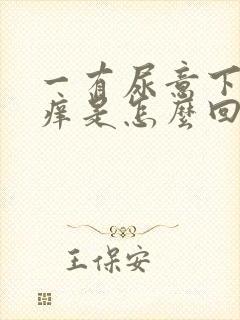 一有尿意下
痒是怎麼回
王保安